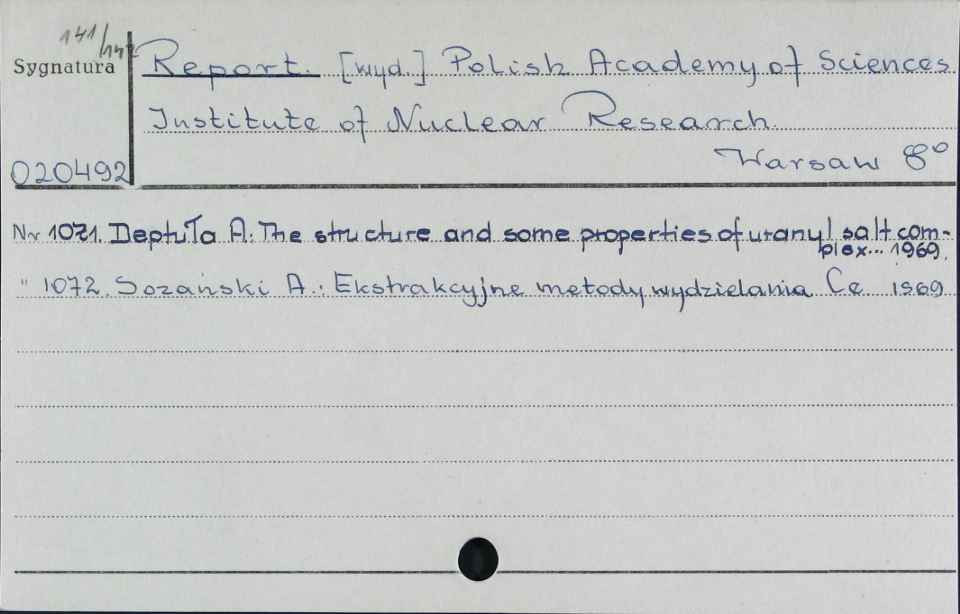 141/142
Sygnatura
020492
Report. [wyd.] Polish Academy of Sciences
Institute of Nuclear Research.
Warsaw 8°
Nr 1071. Deptuła A.: The structure and some properties of uranyl salt com-
plex... 1969.
" 1072. Sozański A.: Ekstrakcyjne metody wydzielania Ce 1969